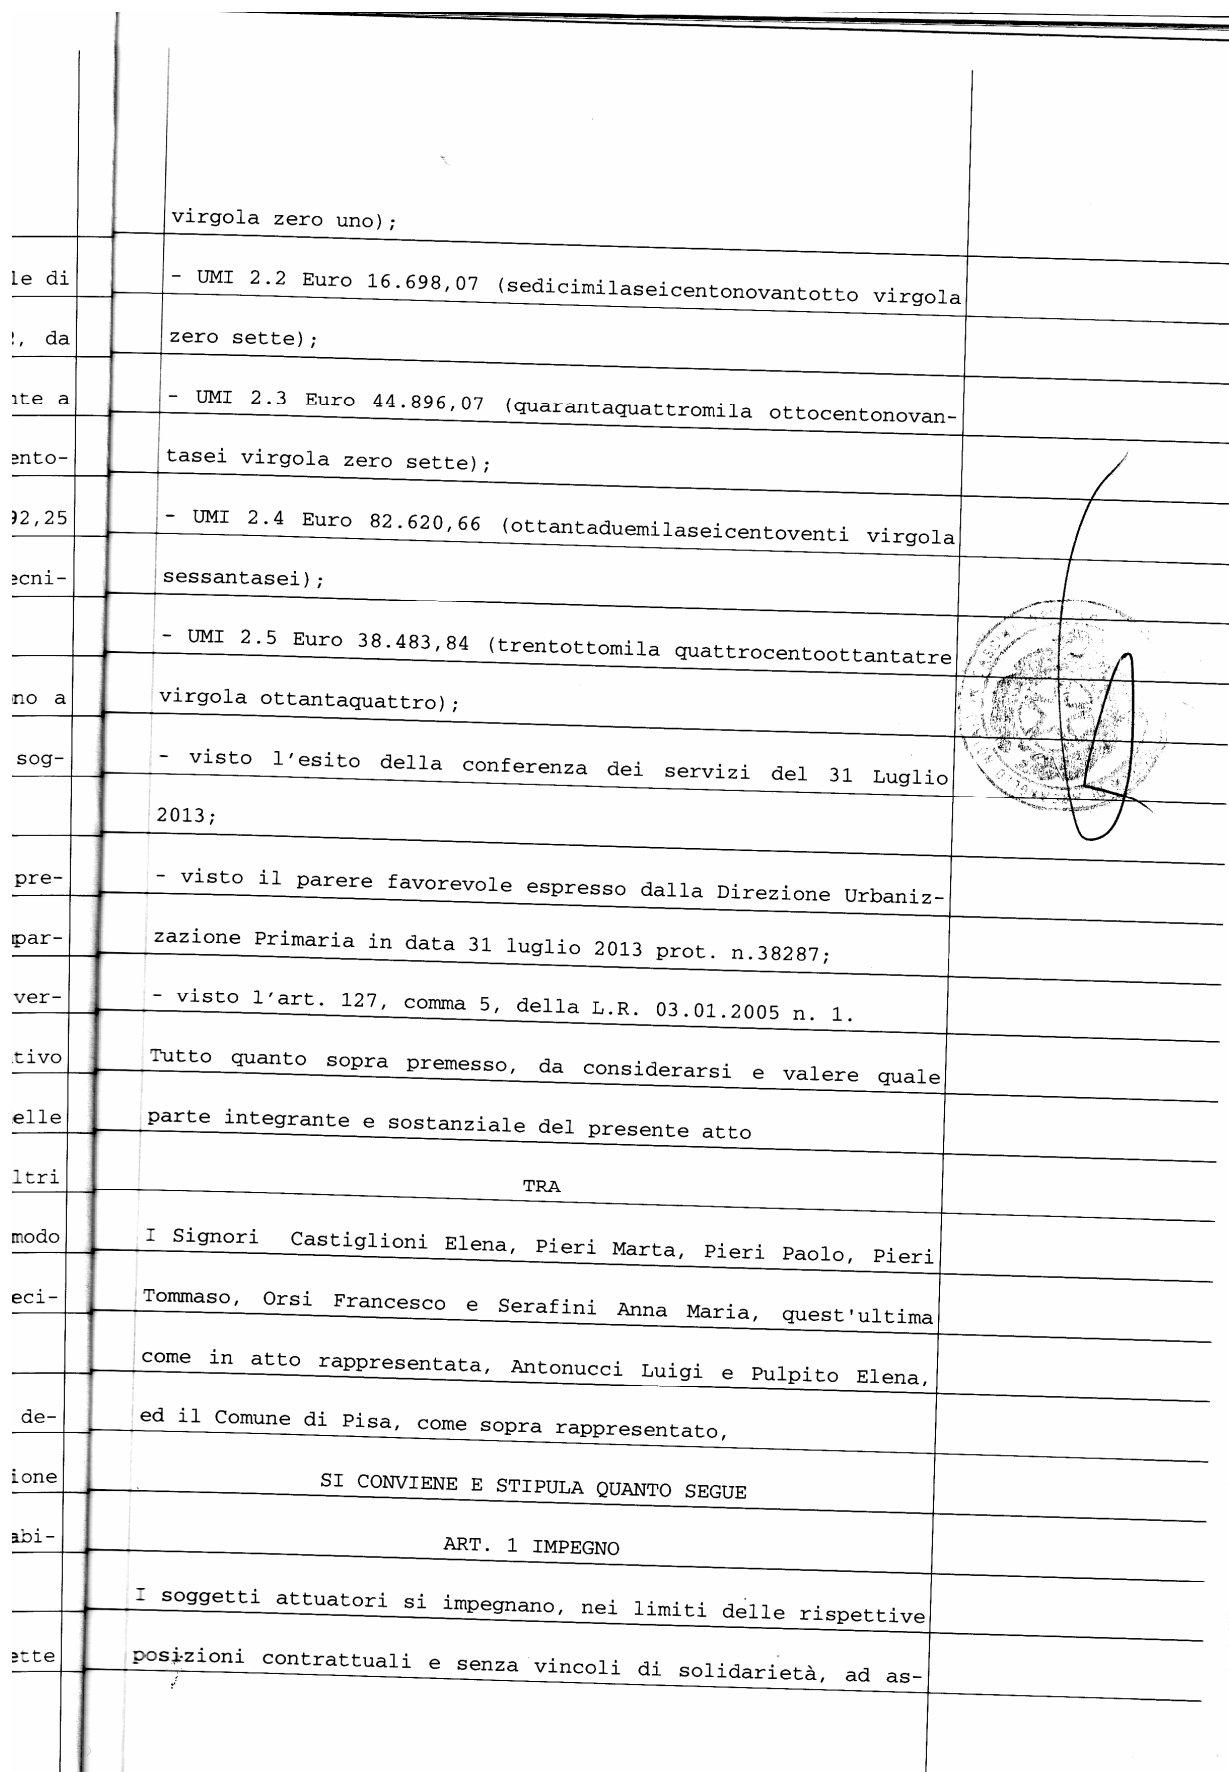 virgola zero uno);
le di
- UMI 2.2 Euro 16.698,07 (sedicimilaseicentonovantotto virgola
, da
zero sette);
nte a
- UMI 2.3 Euro 44.896,07 (quarantaquattromila ottocentonovan-
ento-
tasei virgola zero sette);
92,25
- UMI 2.4 Euro 82.620,66 (ottantaduemilaseicentoventi virgola
ecni-
sessantasei);
- UMI 2.5 Euro 38.483,84 (trentottomila quattrocentoottantatre
no a
virgola ottantaquattro);
sog-
- visto l'esito della conferenza dei servizi del 31 Luglio
2013;
pre-
- visto il parere favorevole espresso dalla Direzione Urbaniz-
par-
zazione Primaria in data 31 luglio 2013 prot. n.38287;
ver-
- visto l'art. 127, comma 5, della L.R. 03.01.2005 n. 1.
tivo
Tutto quanto sopra premesso, da considerarsi e valere quale
elle
parte integrante e sostanziale del presente atto
ltri
TRA
modo
I Signori Castiglioni Elena, Pieri Marta, Pieri Paolo, Pieri
eci-
Tommaso, Orsi Francesco e Serafini Anna Maria, quest'ultima
come in atto rappresentata, Antonucci Luigi e Pulpito Elena,
de-
ed il Comune di Pisa, come sopra rappresentato,
ione
SI CONVIENE E STIPULA QUANTO SEGUE
abi-
ART. 1 IMPEGNO
I soggetti attuatori si impegnano, nei limiti delle rispettive
ette
posizioni contrattuali e senza vincoli di solidarietà, ad as-